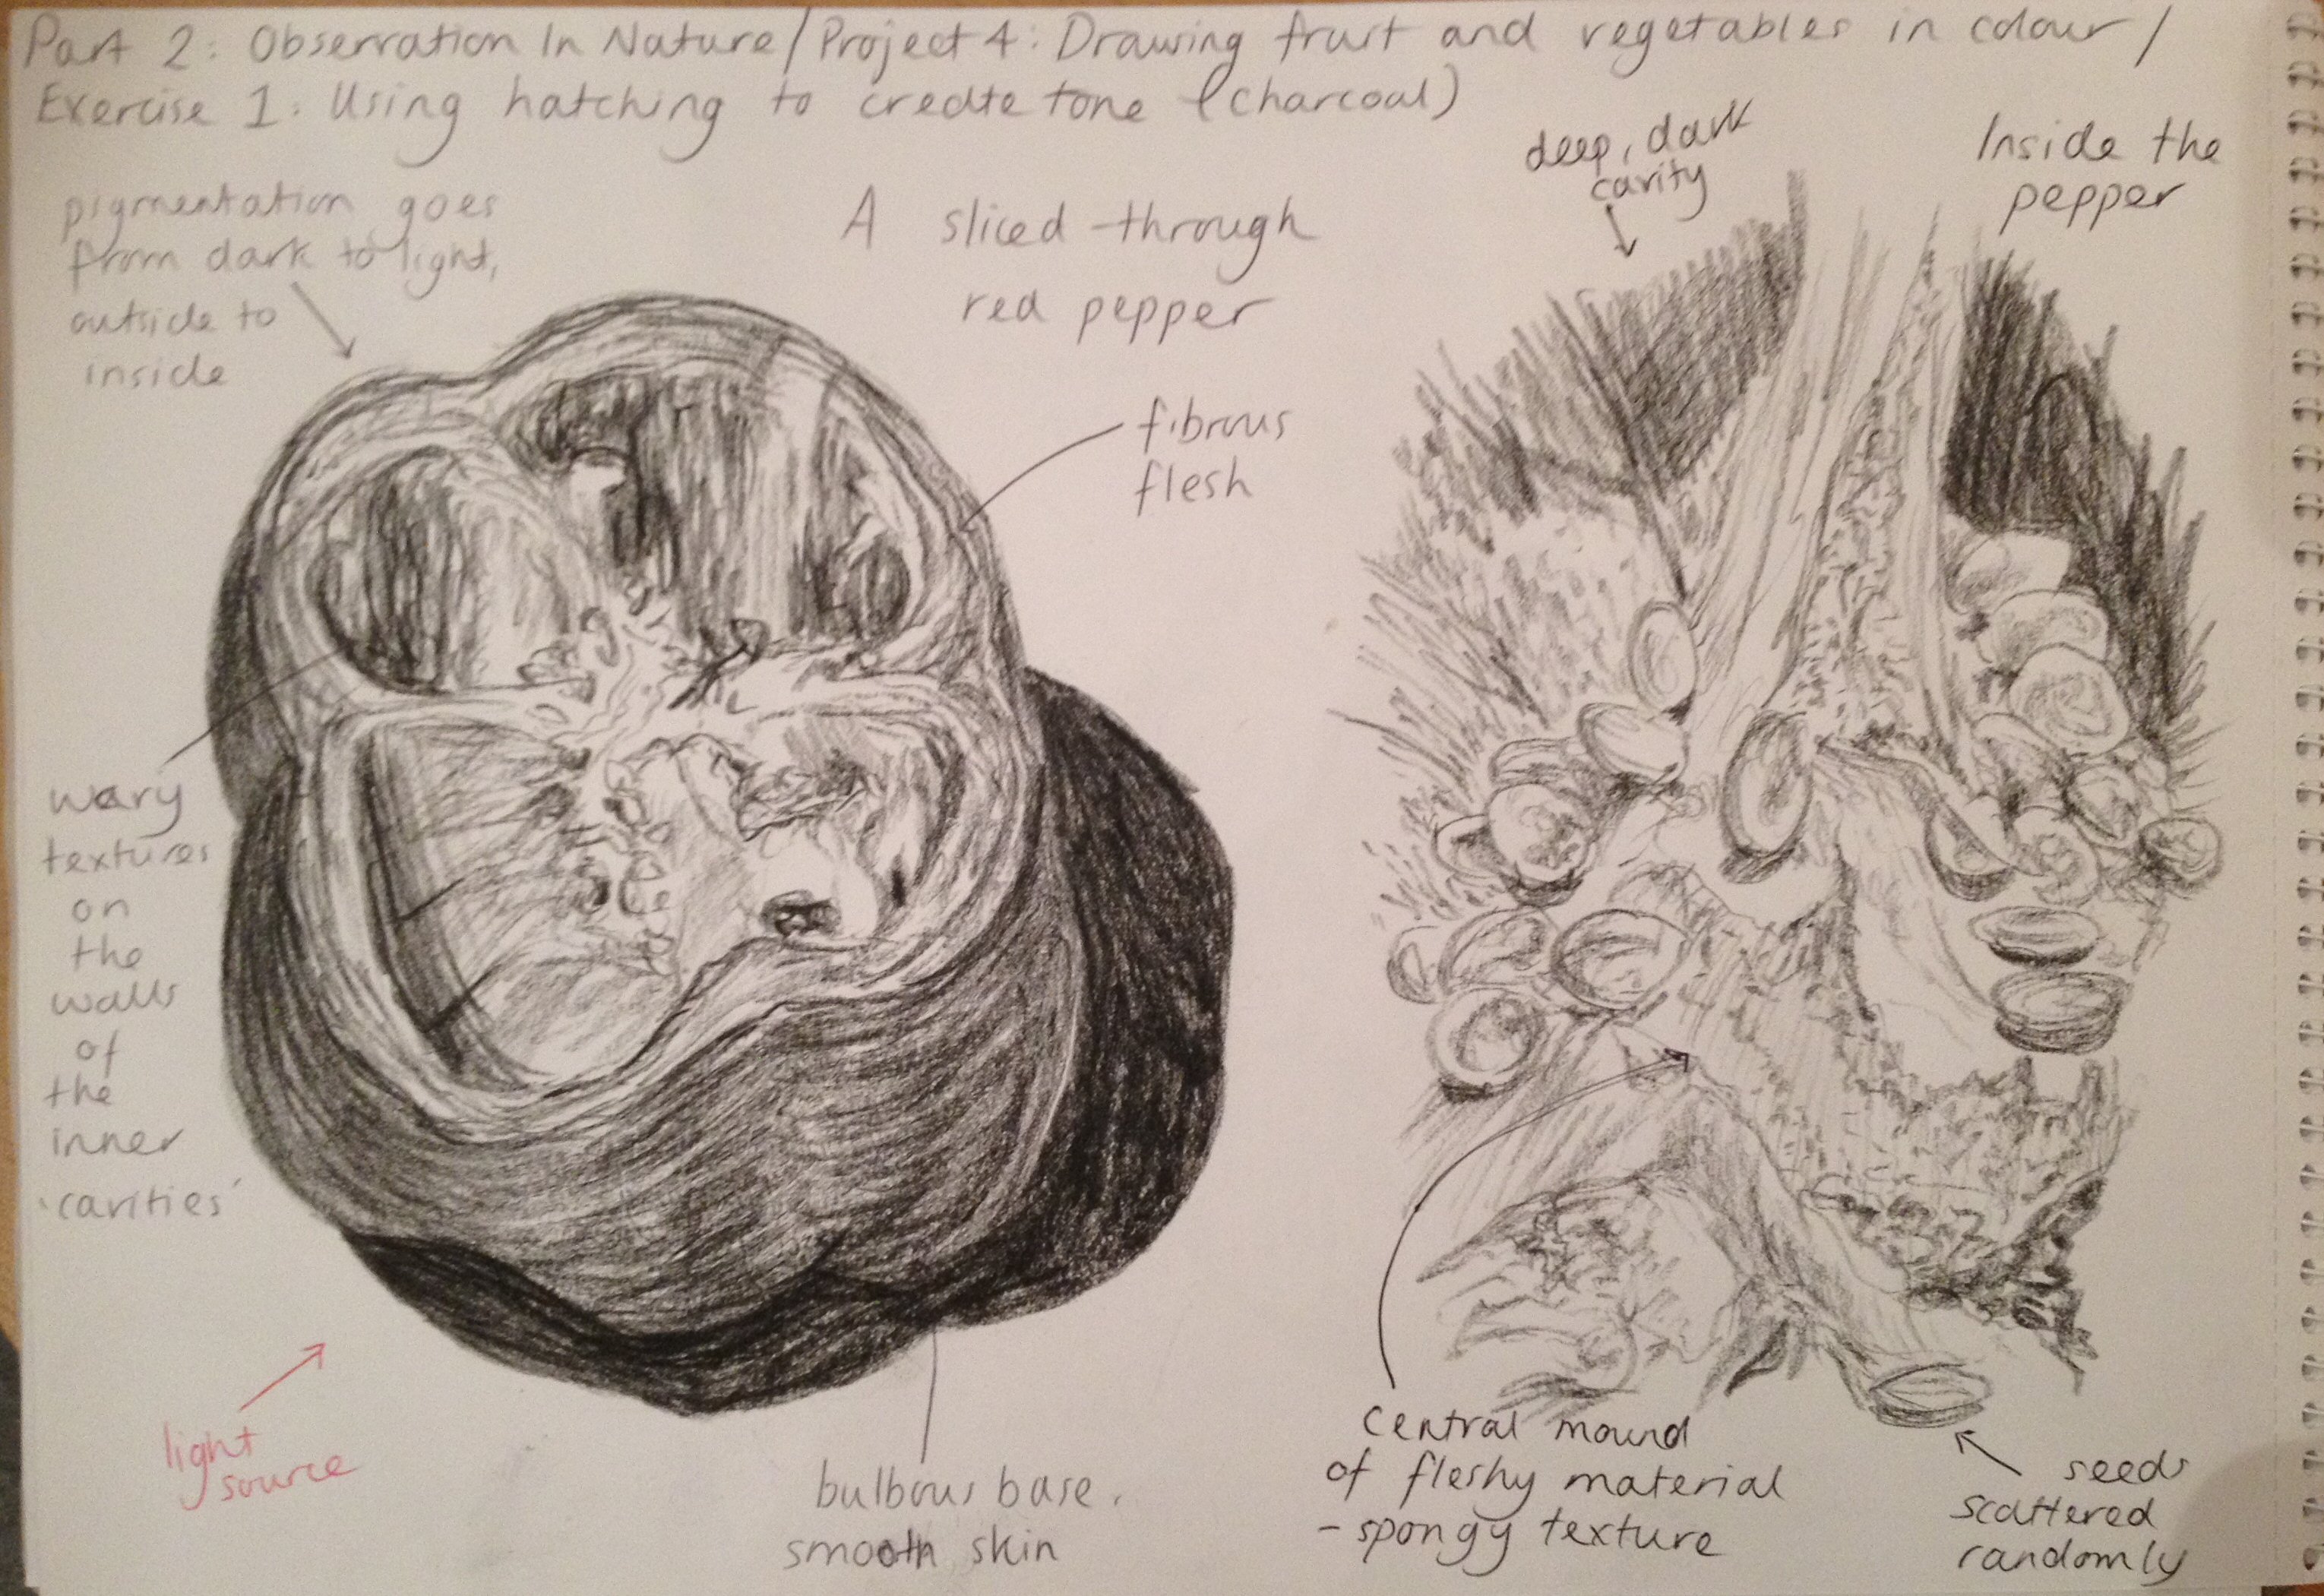 Part 2: Observation In Nature/Project 4: Drawing fruit and vegetables in colour/
Exercise 1: Using hatching to create tone (charcoal)
pigmentation goes
from dark to light,
outside to
inside
A sliced-through
red pepper
deep, dark
cavity
Inside the
pepper
fibrous
flesh
waxy
textures
on
the
walls
of
the
inner
'cavities'
light
source
bulbous base.
smooth skin
central mound
of fleshy material
- spongy texture
seeds
scattered
randomly